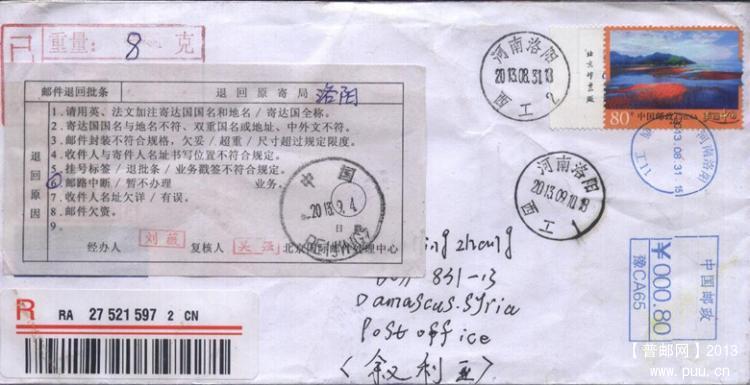 已
重量: 8 克
邮件退回批条 退回原寄局 洛阳
退回原因
1. 请用英、法文加注寄达国国名和地名/寄达国全称。
2. 寄达国国名与地名不符、双重国名或地址、中外文不符。
3. 邮件封装不符合规格，欠妥/超重/尺寸超过规定限度。
4. 收件人与寄件人名址书写位置不符合规定。
5. 挂号标签/退批条/业务戳签不符合规定。
6. 邮路中断/暂不办理 业务。
7. 收件人名址欠详/有误。
8. 邮件欠资。
9.
经办人 刘薇 复核人 吴强 北京国际邮件处理中心
中国
2013.9.4
河南洛阳
2013.08.31.18
河南洛阳
2013.09.10.18
80分 中国邮政 CHINA
河南洛阳
2013.08.31.15
中国邮政
¥000.80
豫CA65
R
RA 27 521 597 2 CN
zhang
831-13
Damascus.Syria
Post office
(叙利亚)
【普邮网】2013
www.puu.cn